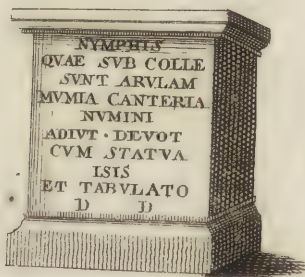 NYMPHIS
QVAE SVB COLLE
SVNT ARVLAM
MVMIA CANTERIA
NVMINI
ADIVT · DEVOT
CVM STATVA
ISIS
ET TABVLATO
D D